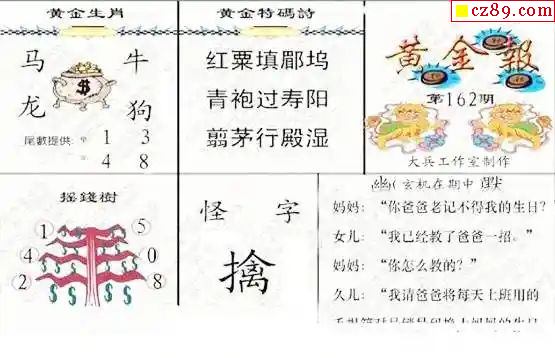 cz89.com
黄金生肖
马 牛
龙 狗
尾數提供: 1 3
4 8
黄金特碼詩
红粟填郿坞
青袍过寿阳
翦茅行殿湿
黄金報
第162期
大兵工作室制作
摇錢樹
1 5
4 0
2 8
怪字
擒
幽(玄机在期中)默
妈妈：“你爸爸老记不得我的生日？
女儿：“我已经教了爸爸一招。”
妈妈：“你怎么教的？”
久儿：“我请爸爸将每天上班用的